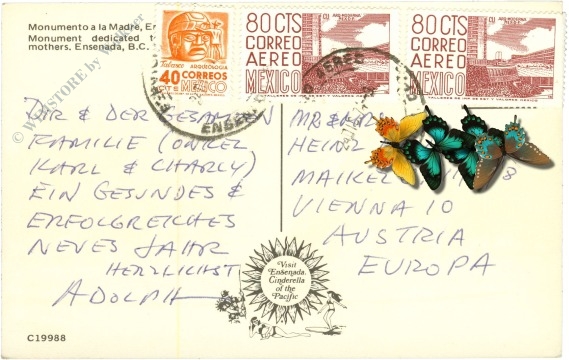 Monumento a la Madre, En
Monument dedicated t
mothers. Ensenada, B.C.
© WEBSTORE by
Tabasco ARQUEOLOGIA
40 CORREOS
CTS MEXICO
80 CTS
CORREO
AEREO
MEXICO
CU ARQ. MODERNA
MEX. D.F.
80 CTS
CORREO
AEREO
MEXICO
CU ARQ. MODERNA
MEX. D.F.
DIR & DER GESAMTEN
FAMILIE (ONKEL
KARL & CHARLY)
EIN GESUNDES &
ERFOLGREICHES
NEUES JAHR
HERZLICHST
ADOLPH
MR & MRS
HEINZ
VIENNA 10
AUSTRIA
EUROPA
Visit
Ensenada,
Cinderella
of the
Pacific
C19988